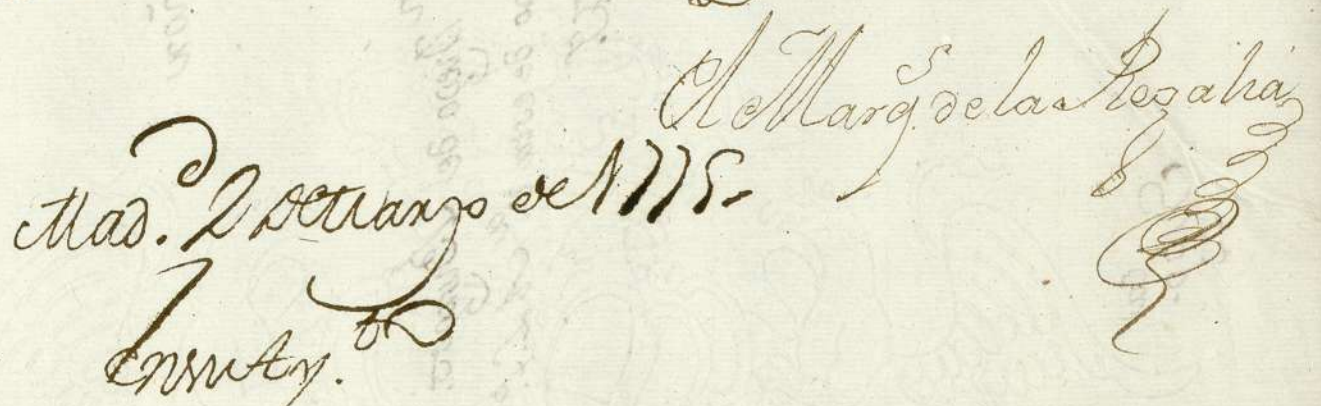 El Marq.s de la Regalia
Mad.d 2 de Marzo de 1775.
En su Ay.to